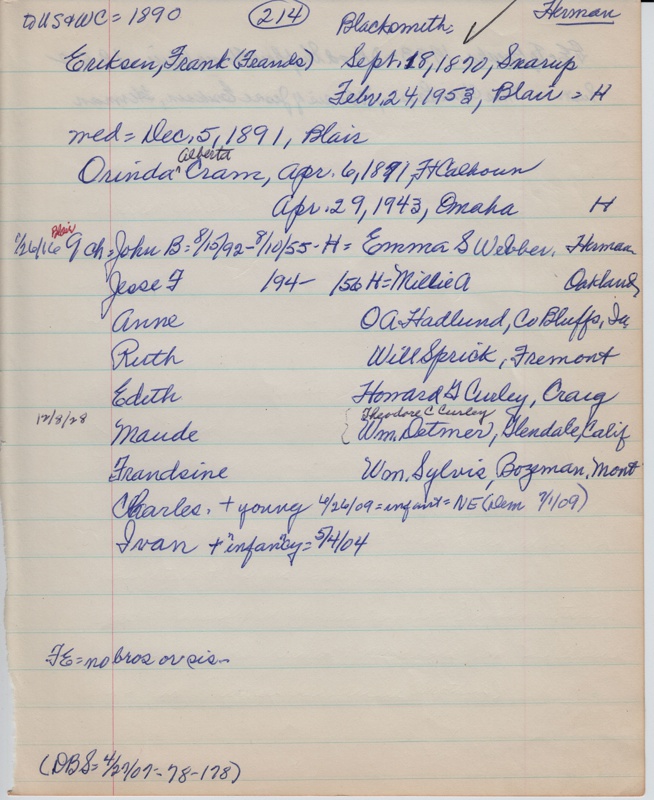 to US & WC = 1890 (214) Blacksmith= ✓ Herman
Eriksen, Frank (Frands) Sept. 18, 1870, Snarup
Febr. 24, 1953, Blair = H
med = Dec. 5, 1891, Blair
Alberta
Orinda ^ Cram, Apr. 6, 1871, Ft Calhoun
Apr. 29, 1943, Omaha H
Blair
7/26/16 9 ch = John B = 8/15/92 - 8/10/55 - H = Emma S Webber, Herman
Jesse F 194- 156 H = Millie A Oakland,
Anne O A Hadlund, Co Bluffs, Ia,
Ruth Will Sprick, Fremont
Edith Howard G Curley, Craig
12/8/28 Theodore C Curley
Maude { Wm. Detmer, Glendale, Calif
Frandsine Wm. Sylvis, Bozeman, Mont
Charles, + young 6/26/09 = infant = NE (Dem 7/1/09)
Ivan + "infancy = 5/4/04
FE = no bros or sis-
(DBS = 4/27/07 - 78 - 178)